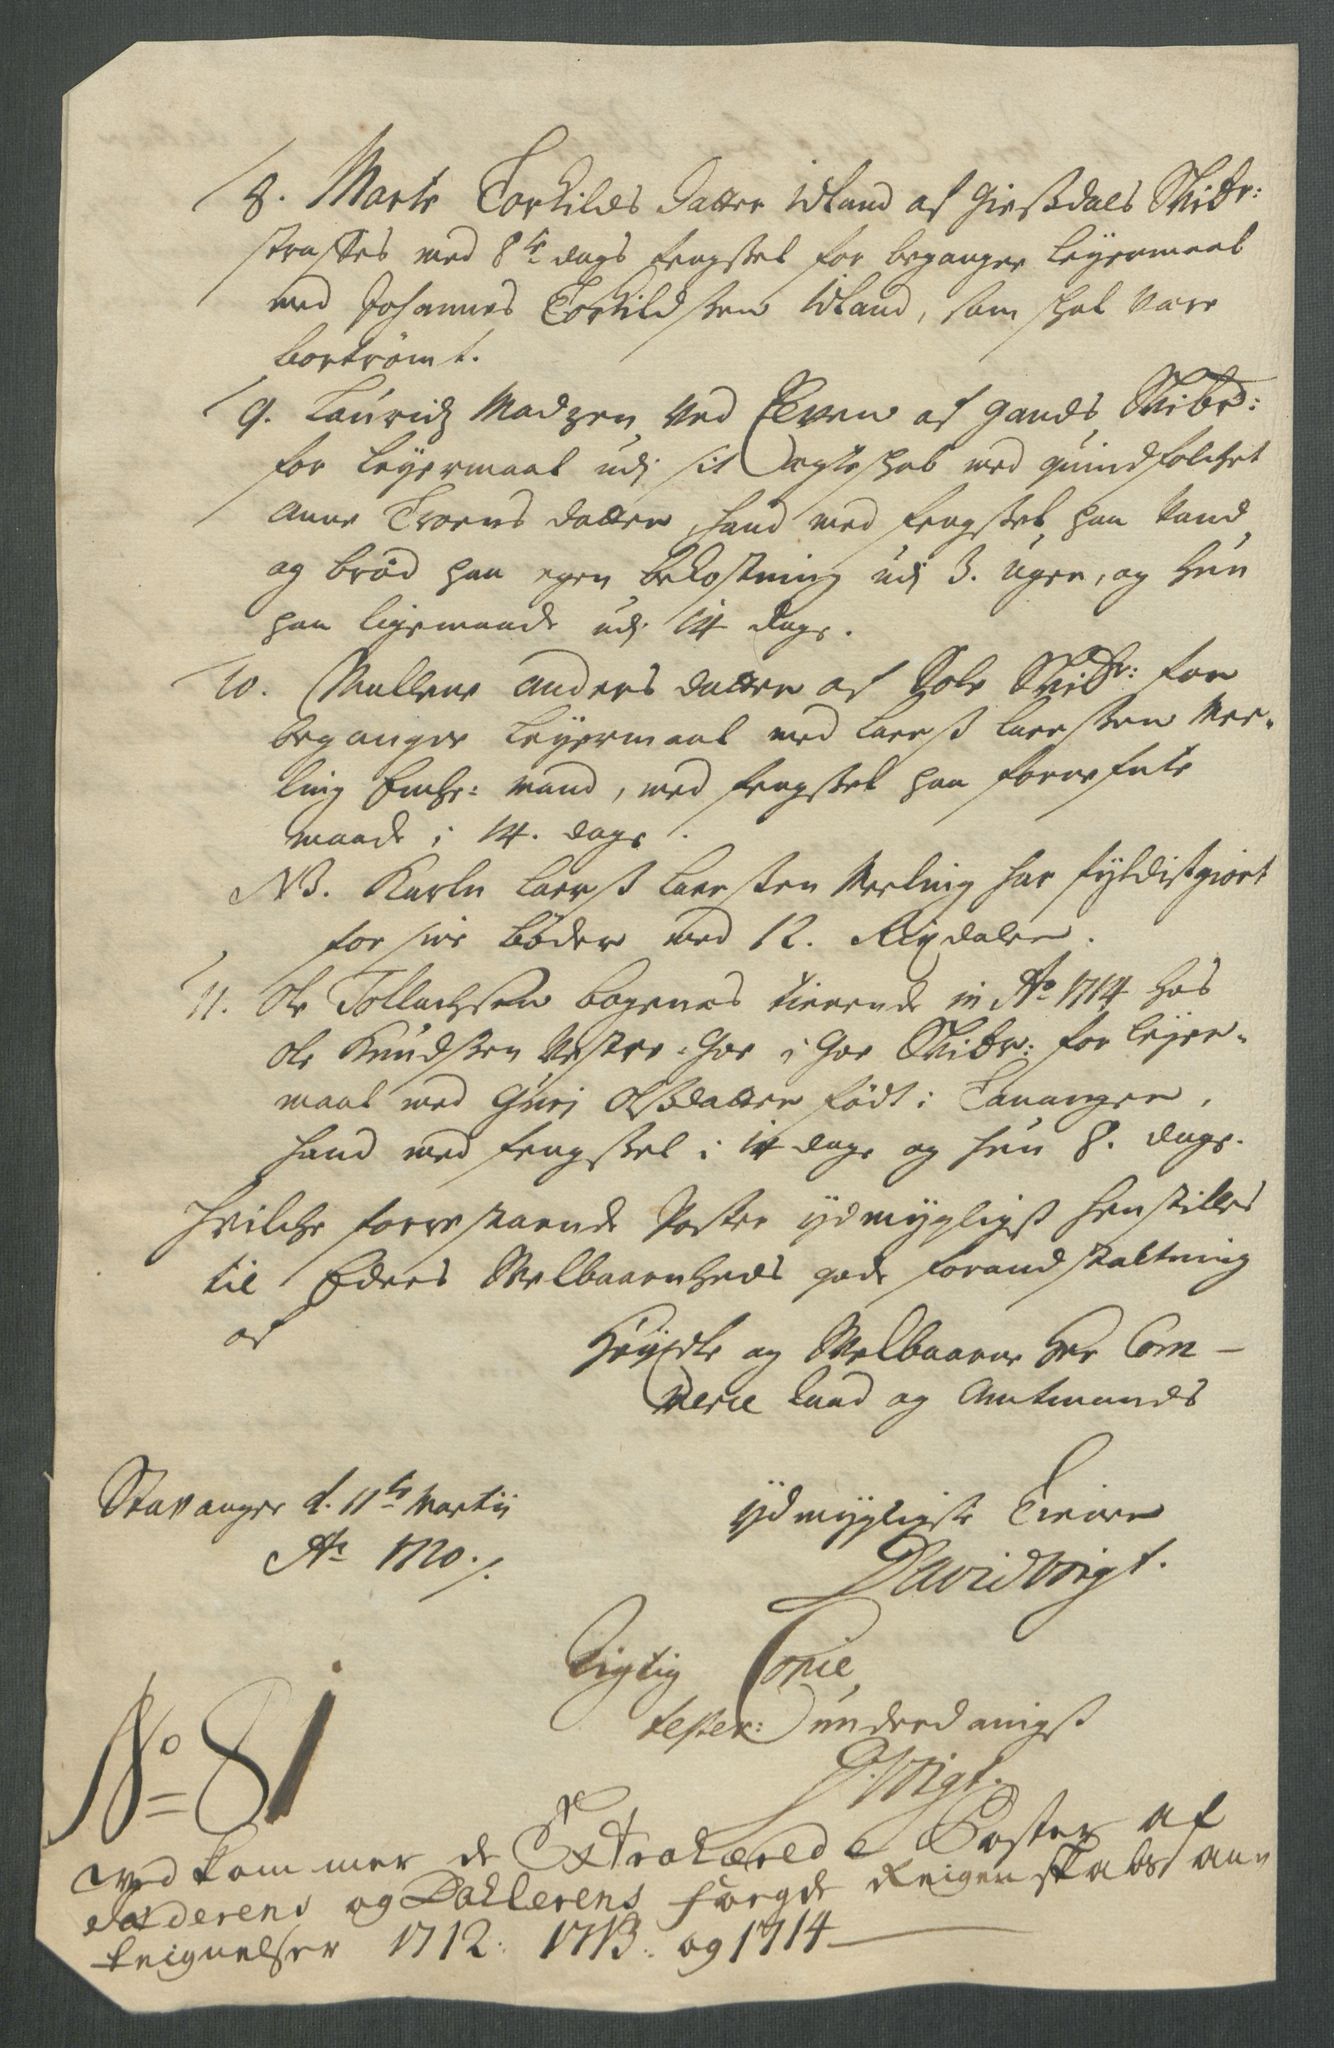 8. Marte Torkilds datter Idland af Giessdals Skibr:
straffes med 8te dags fengssel for begangen leyermaal
med Johannes Torkildssen Idland, som skal være
bortrømt.
9. Lauridz Madzen ved Elven af Gands Skibrd:
for leyermaal udj sit Ægteskab med quindfolchet
Anne Troens datter, hand med fengssel paa Vand
og brød paa egen bekostning udj 3. uger, og hun
paa ligemaade udj 14 dage.
10. Mallene Anders datter af Sole Skibr: for
begangne leyermaal med Laerss Laerssen Mee-
ling Enche: mand, med fengssel paa forrefatte
maade i 14. dage.
NB. Karln Laerss Laerssen Meeling har fyldistgiort
for sine bøder med 12. Rixdaler.
11. Ole Tollachsen bogenes tienende in Ao 1714 hos
Ole Knudssen Vestre-Hae i Hae Skibr: for leyer-
maal med Guri Olssdatter født i Tananger,
hand med fengssel i 14 dage og hun 8. dage.
Hvilche forrestaaende Poster ydmygligst henstilles
til Eders Velbaarenheds gode foranstaltning
af
Høyædle og Velbaarne Her Com-
merce Raad og Amtmands
Stavanger d. 11te Martij
Ao 1720./.
ydmygligste Tiener
David Voigt.
Rigtig Copie,
tester: underdanigst
D. Voigt.
No 81
vedkommer de Extraherede Poster af
dølderens og Pachterens forrgde Reigenskabs ann
teignelser 1712: 1713: og 1714